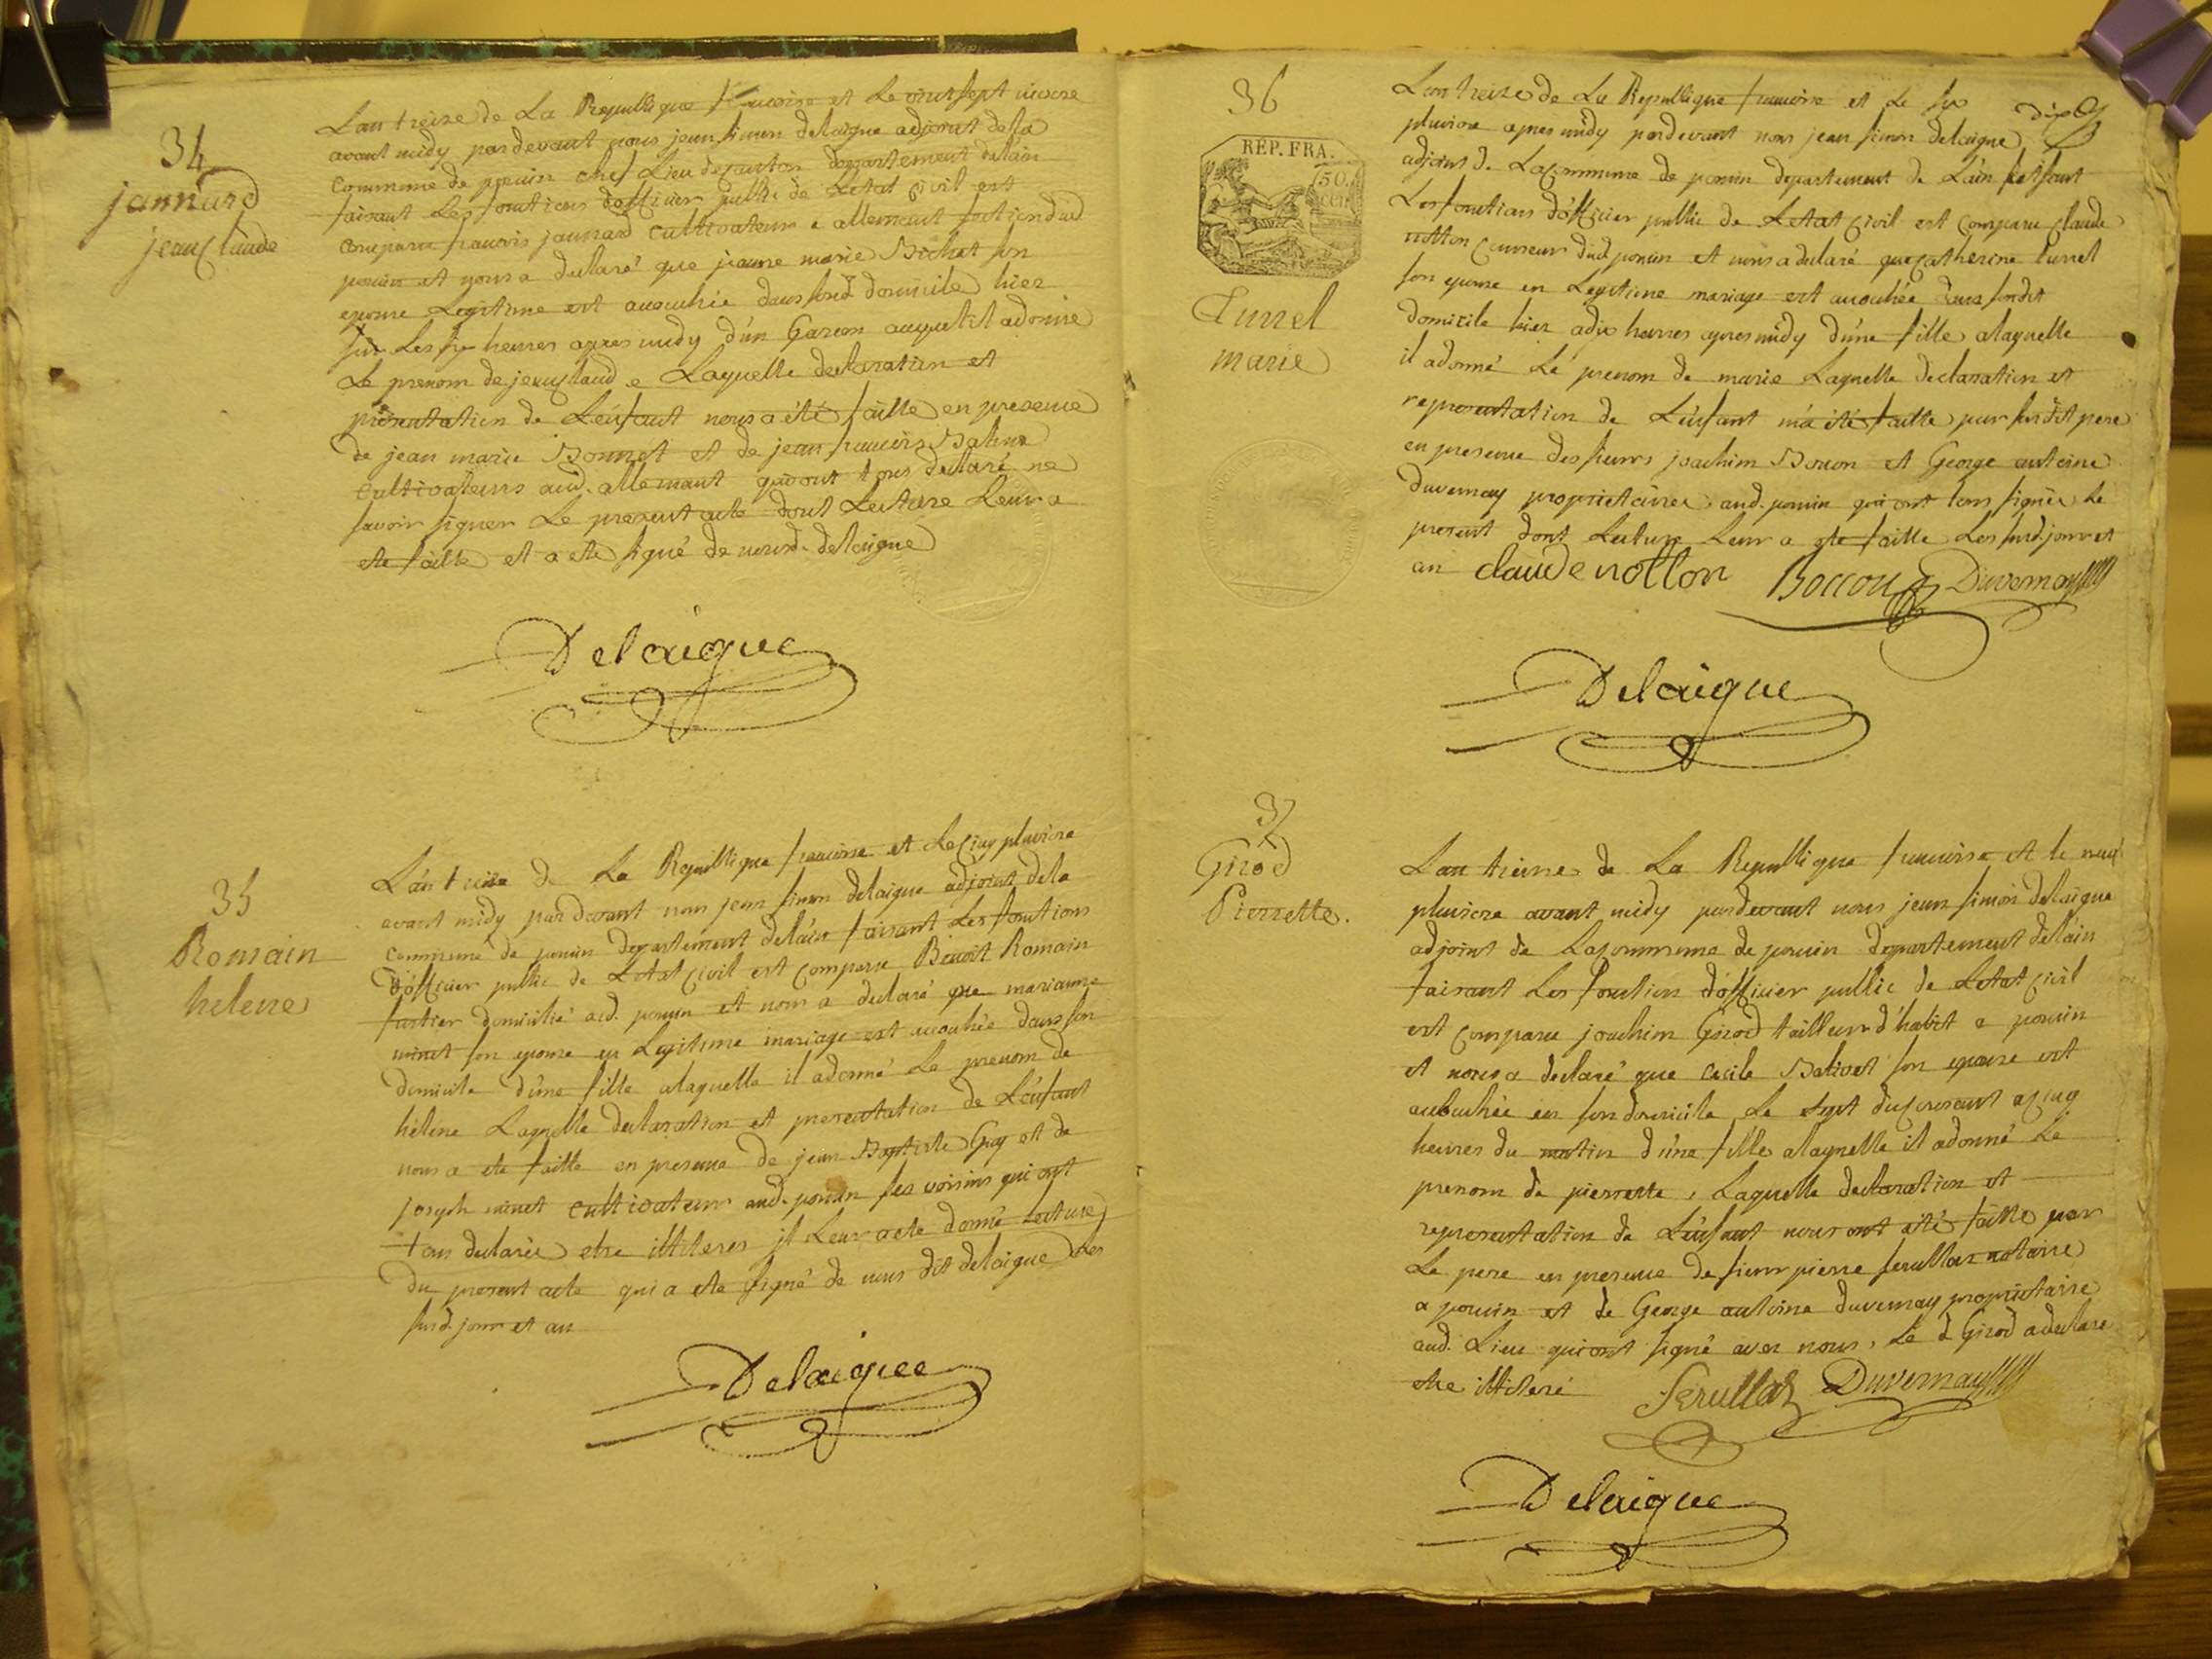 34
jannard
jean Claude
Lan treize de La Republique francoise et Le vint sept nivose
avant midy pardevant nous jean simon delaigue adjoint de la
commune de poncin chef Lieu de canton departement delain
faisant Les fonctions dofficier public de Letat civil est
comparu francois jannard cultivateur a allement section dud
poncin et nous a declaré que jeanne marie Bichat son
epouse Legitime est accouchée dans sond domicile hier
sur Les six heures apres midy d'un Garcon auquel il a donné
Le prenom de jean Claude Laquelle declaration et
presentation de Lenfant nous a été faitte en presence
de jean marie Bonnet et de jean francois
cultivateurs aud. allemant qui ont tous declaré ne
savoir signer Le present acte dont Lecture Leur a
ete faitte et a ete signé de nousd. delaigue
Delaigue
35
Romain
helene
Lan treize de La Republique francoise et Le cinq pluviose
avant midy pardevant nous jean simon delaigue adjoint dela
commune de poncin departement delain faisant Les fonctions
d'officier public de Letat civil est comparu Benoit Romain
domicilié aud. poncin et nous a declaré que marianne
minet son epouse en Legitime mariage est accouchée dans son
domicile d'une fille alaquelle il adonné Le prenom de
hélene Laquelle declaration et presentation de Lenfant
nous a ete faitte en presence de jean Baptiste Guy et de
joseph minet cultivateur aud. poncin ses voisins qui ont
tous declarée etre illiteres il Leur a ete donné Lecture
du present acte qui a ete signé de nous dit delaigue Les
susd. jour et an
Delaigue
36
RÉP. FRA.
50.
CEN.
Turrel
marie
Lan treize de La Republique francoise et Le six
pluviose apres midy pardevant nous jean simon delaigue
adjoint de Lacommune de poncin departement de Lain faisant
Les fonctions d'officier public de Letat civil est comparu Claude
notton dud poncin et nous a declaré que catherine turrel
son epouse en Legitime mariage est accouchée dans sondit
domicile hier adix heures apres midy d'une fille alaquelle
il adonné Le prenom de marie Laquelle declaration et
representation de Lenfant m'a été faitte par sondit pere
en presence des sieurs joachim Bocon et George antoine
duvernay proprietaires aud. poncin qui ont tous signés Le
present dont Lecture Leur a ete faitte Les susd. jour et
an claude notton Boccou Duvernay
Delaigue
37
Girod
Pierrette.
Lan treize de La Republique francoise et le neuf
pluviose avant midy pardevant nous jean simon delaigue
adjoint de Lacommune de poncin departement delain
faisant Les fonction d'officier public de Letat civil
est comparu joachim Girod tailleur d'habit a poncin
et nous a declaré que cecile Balivet son epouse est
accouchée en son domicile Le sept du courant a cinq
heures du matin d'une fille alaquelle il adonné Le
prenom de pierrette, Laquelle declaration et
representation de Lenfant nous ont été faitte par
Le pere en presence de sieur pierre serullaz notaire
a poncin et de George antoine duvernay proprietaire
aud. Lieu qui ont signé avec nous, Le d Girod a declare
etre illiteré Serullaz Duvernay
Delaigue